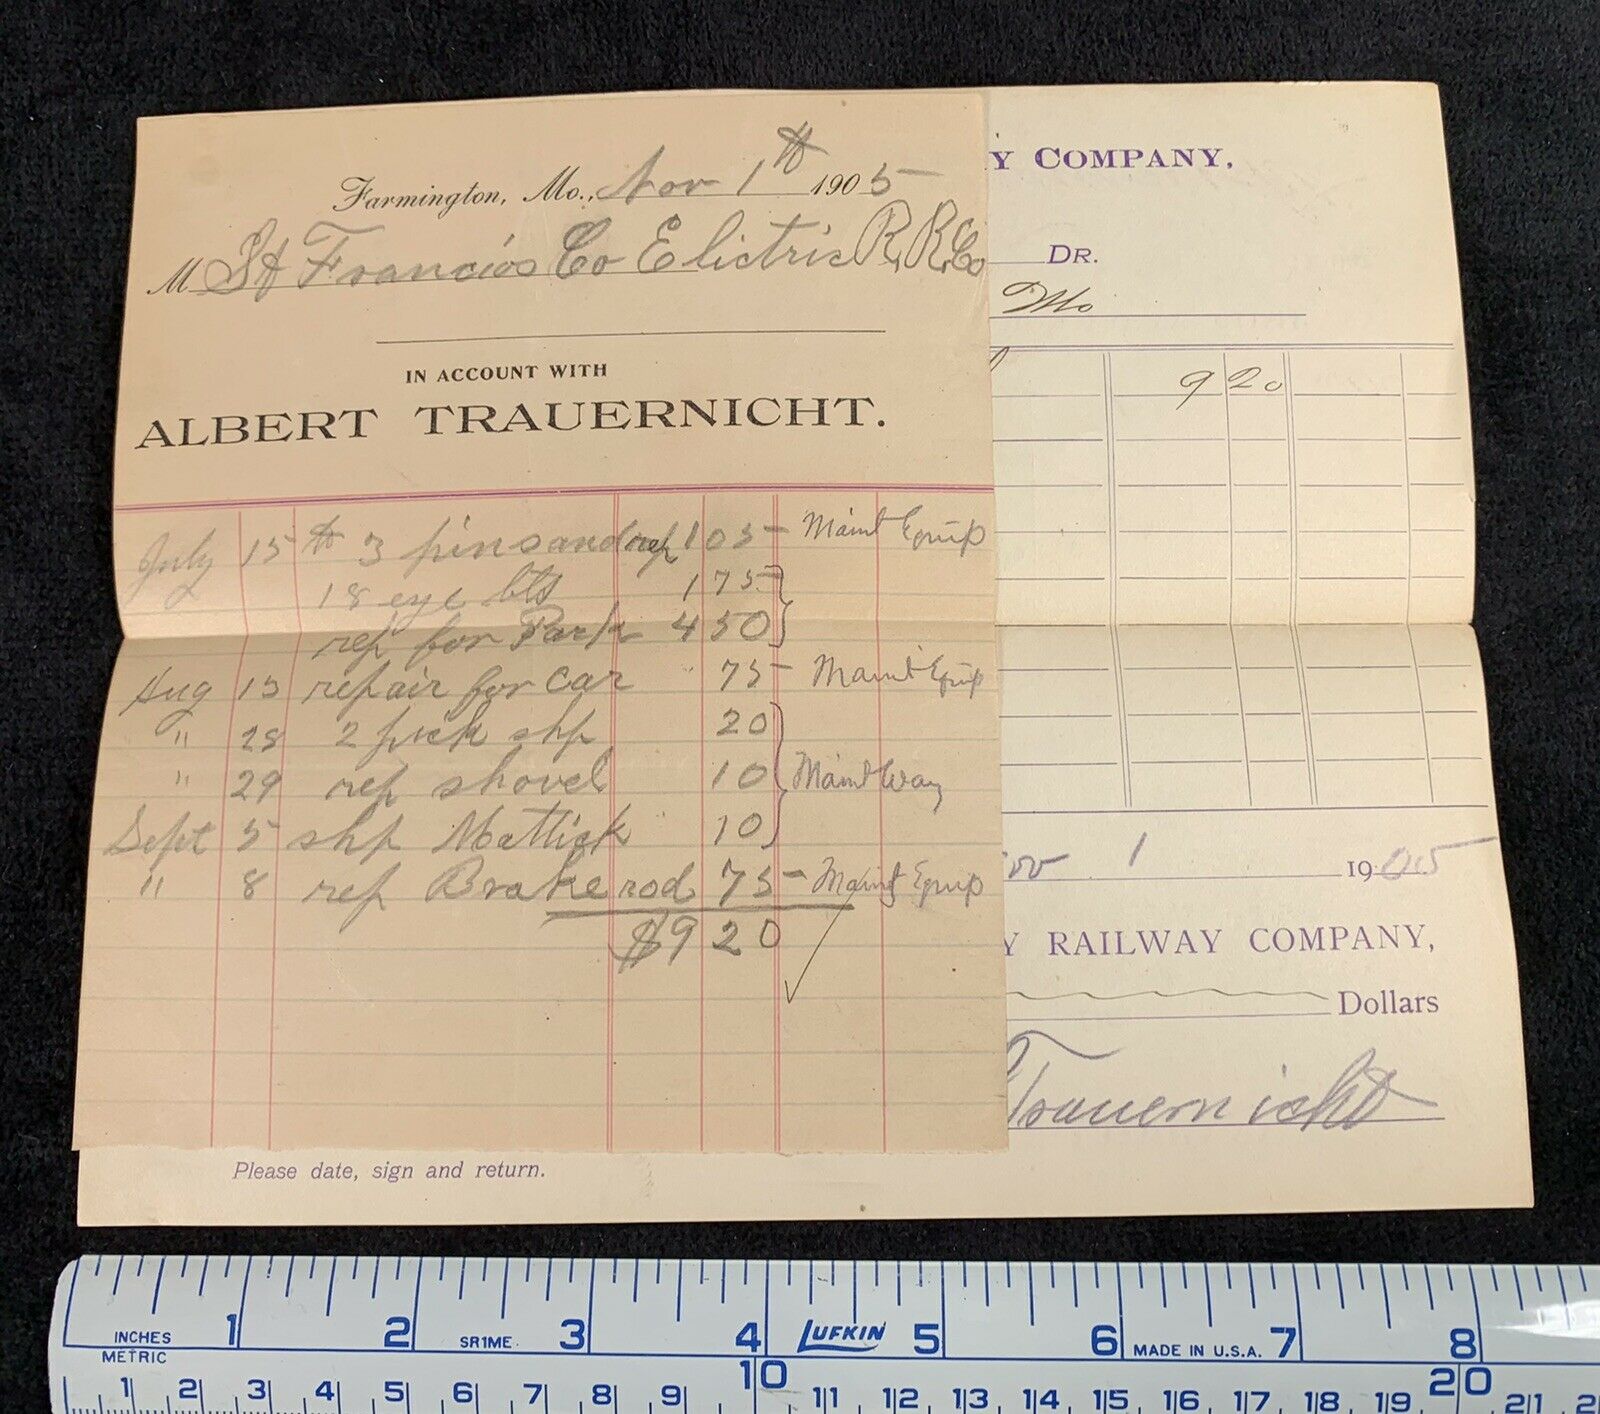 Farmington, Mo., Nov 1th 1905
M St Francios Co Elictric R.R.Co
IN ACCOUNT WITH
ALBERT TRAUERNICHT.
July 15 th 3 pins and rep 1 05 - Maint Equip
18 eye bts 1 75
rep for Park 4 50
Aug 15 repair for car 75 - Maint Equip
" 28 2 pick shp 20
" 29 rep shovel 10 Maint Way
Sept 5 shp Mattick 10
" 8 rep Brake rod 75 - Maint Equip
$9 20
Y COMPANY,
DR.
Mo
9 20
ov 1 1905
Y RAILWAY COMPANY,
Dollars
Trauernicht
Please date, sign and return.
INCHES 1 2 SR1ME 3 4 LUFKIN 5 6 MADE IN U.S.A. 7 8
METRIC 1 2 3 4 5 6 7 8 9 10 11 12 13 14 15 16 17 18 19 20 21 2